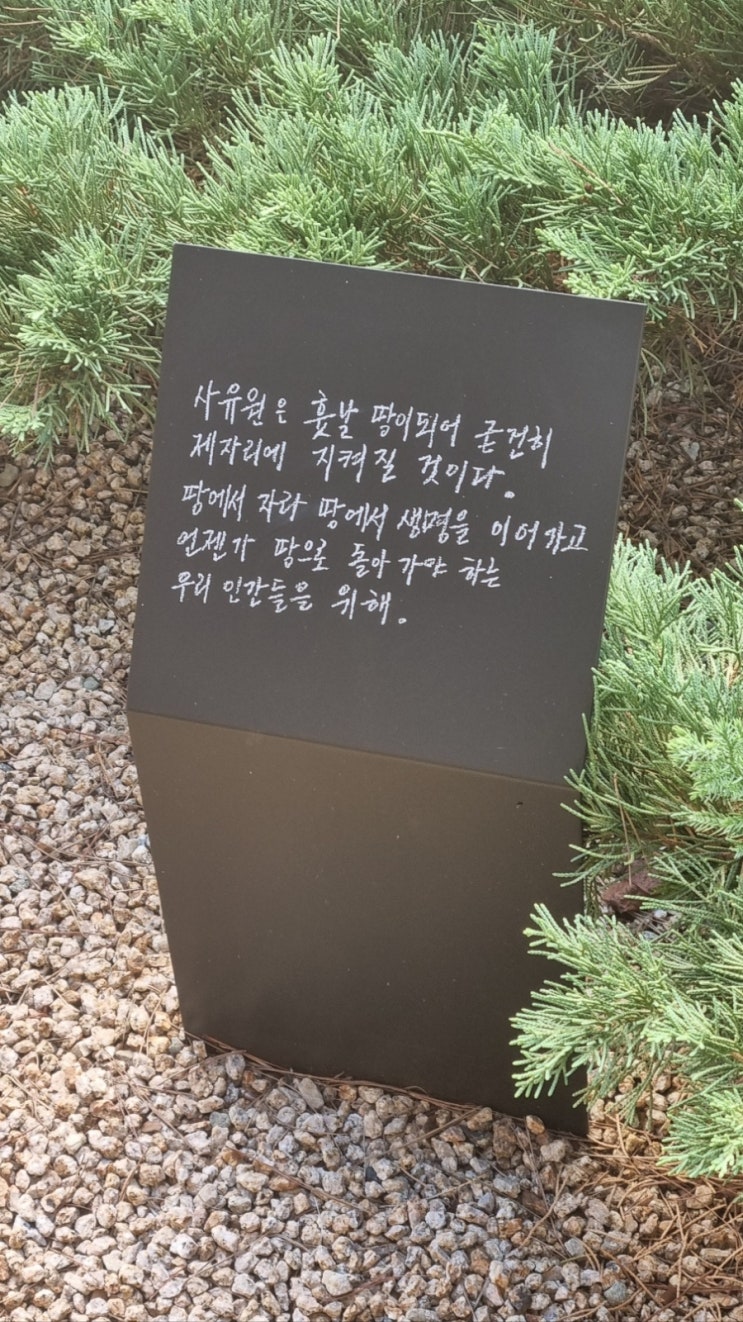 사유원은 훗날 땅이되어 굳건히
제자리에 지켜질 것이다.
땅에서 자라 땅에서 생명을 이어가고
언젠가 땅으로 돌아가야 하는
우리 인간들을 위해.